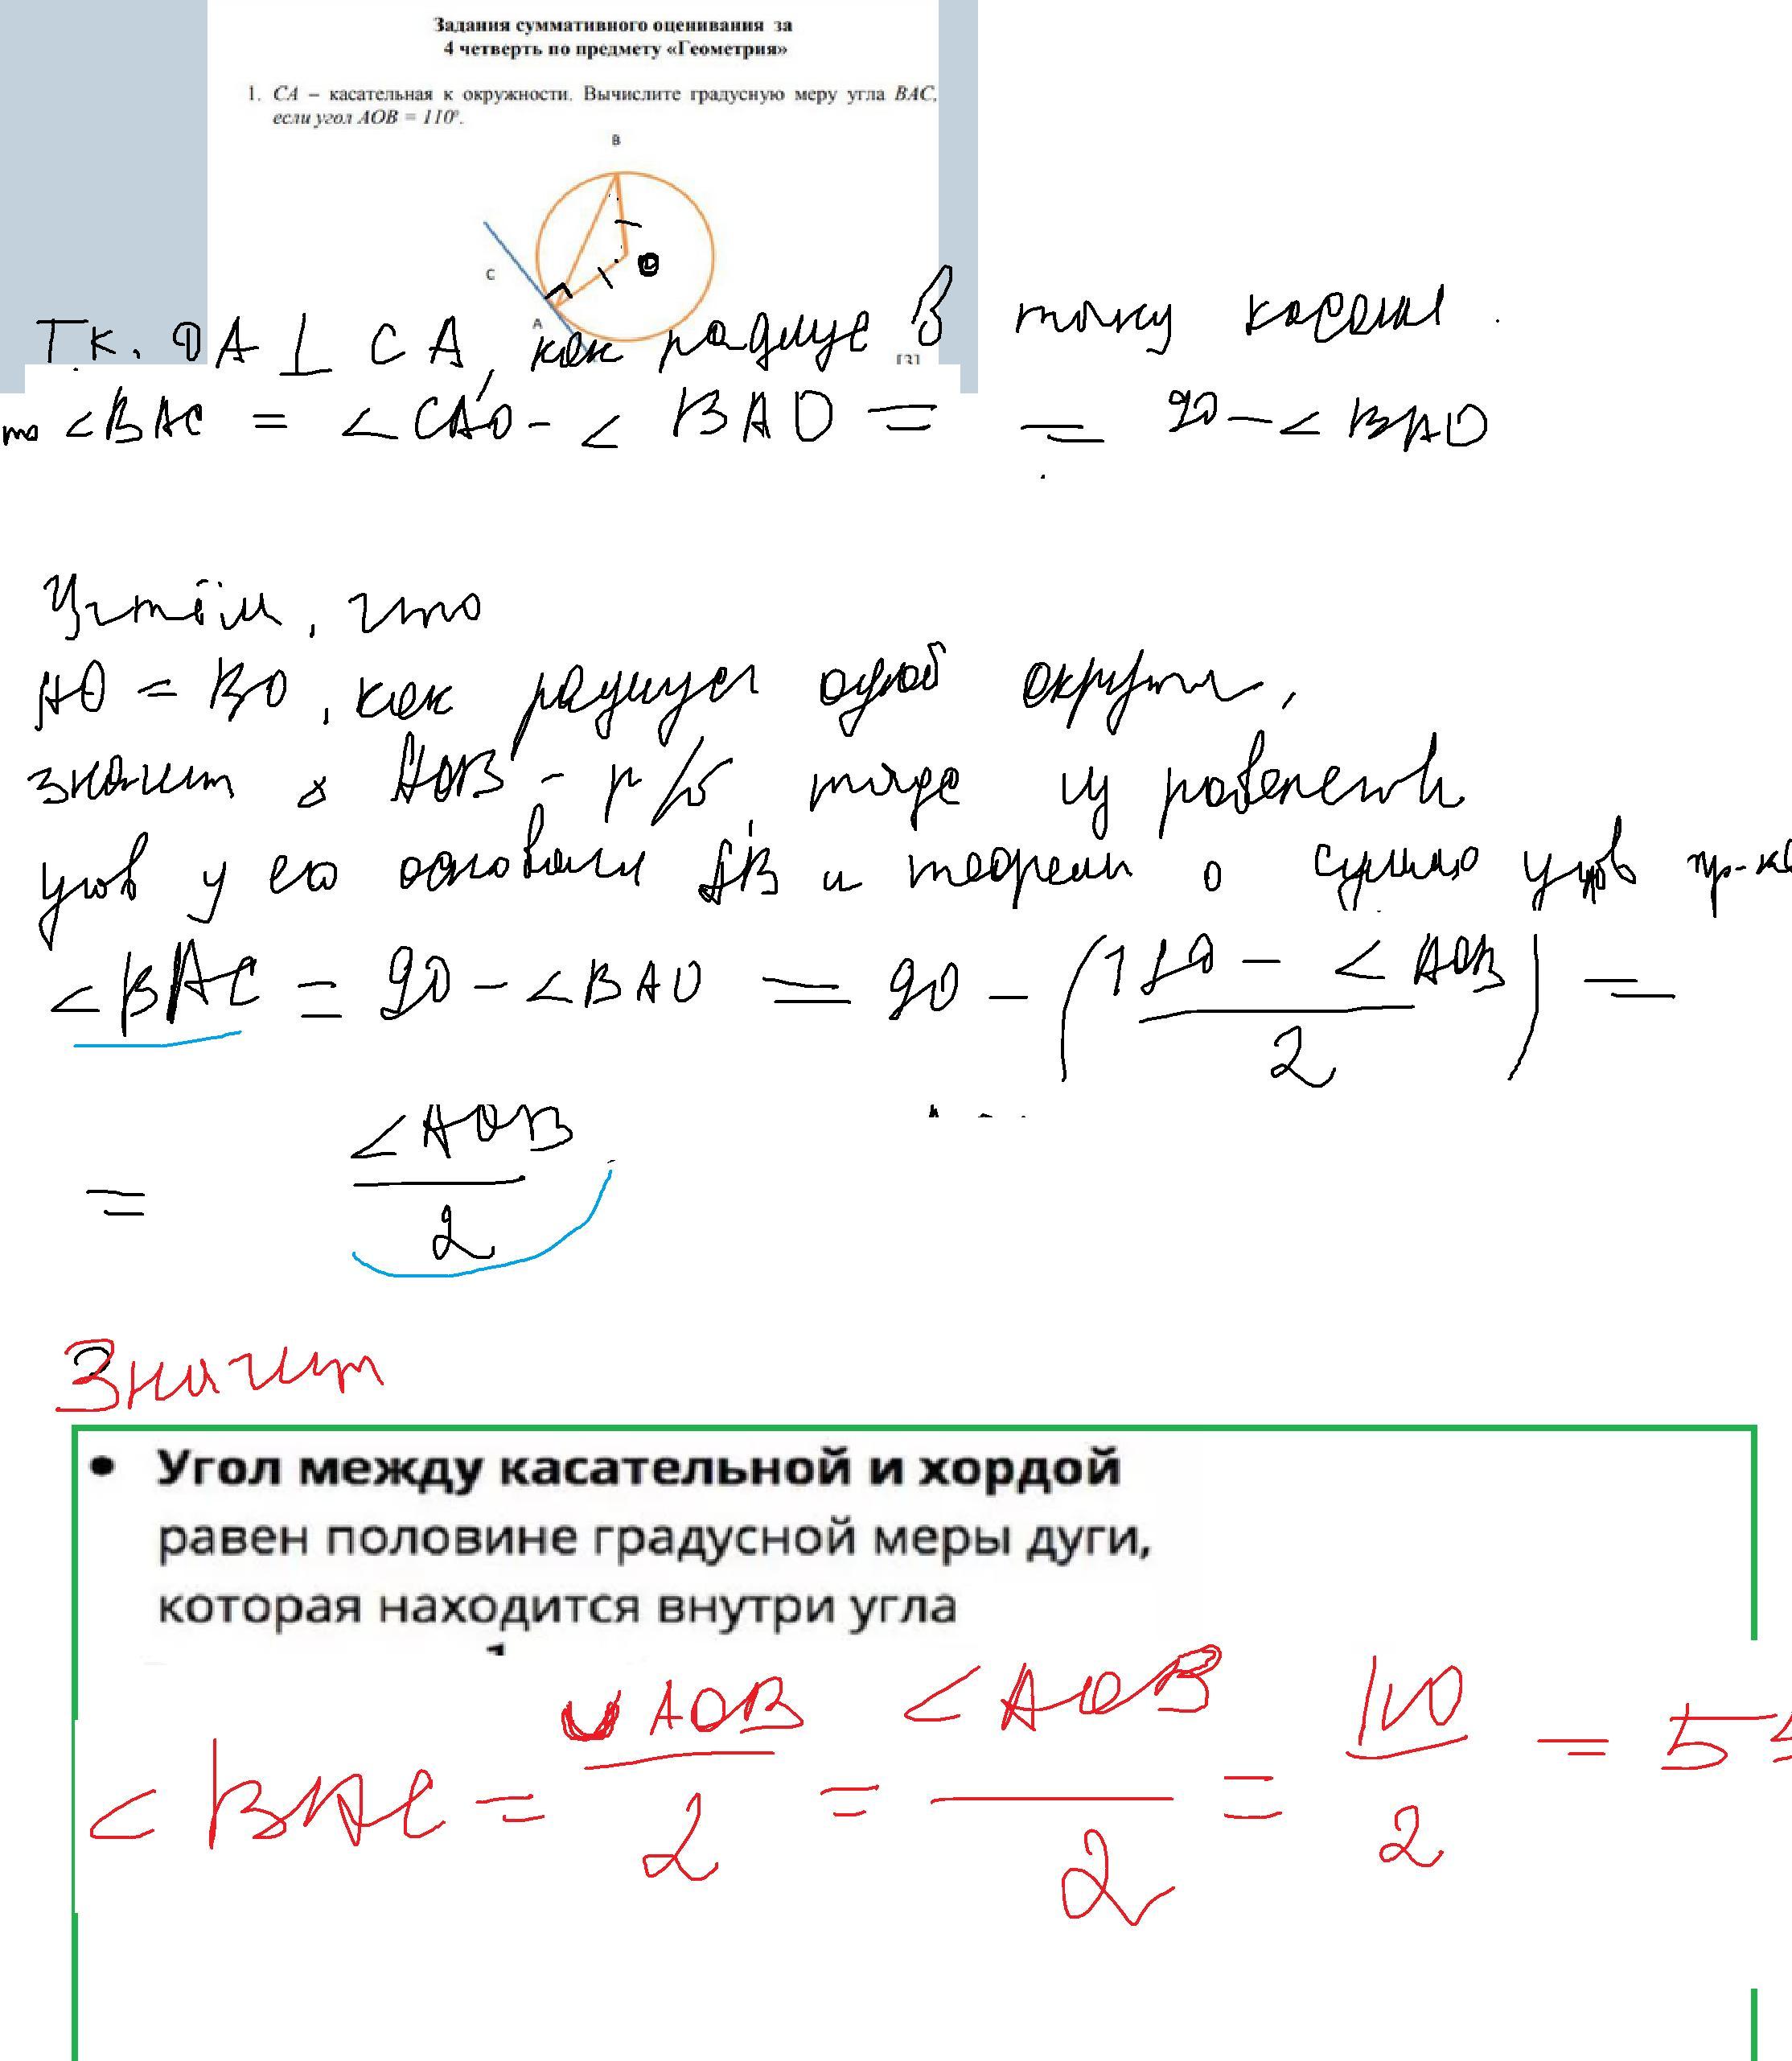 Задания суммативного оценивания за
4 четверть по предмету «Геометрия»
1. CA – касательная к окружности. Вычислите градусную меру угла BAC,
если угол AOB = 110⁰.
B
C
O
A
[3]
Т.к. OA ⊥ CA, как радиус в точку касания.
то <BAC = <CAO - < BAO = = 90 - < BAO
Учтём, что
AO = BO, как радиусы одной окружности,
значит △ AOB - р/б, тогда из равенства
углов у его основания AB и теоремы о сумме углов тр-ка
<BAC = 90 - <BAO = 90 - (180 - <AOB / 2) =
= <AOB / 2
Значит
• Угол между касательной и хордой
равен половине градусной меры дуги,
которая находится внутри угла
<BAC = ◡AOB / 2 = <AOB / 2 = 110 / 2 = 55